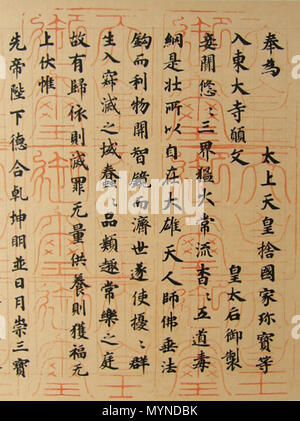 奉為　太上天皇捨國家珎寶等
入東大寺願文　皇太后御製
妾聞悠々三界猛火常流杳々五道毒
網是壮所以自在大雄天人師佛垂法
鈎而利物開智鏡而濟世遂使擾々群
生入寂滅之域蠢々品類趣常樂之庭
故有歸依則滅罪无量供養則獲福无
上伏惟
先帝陛下德合乾坤明並日月崇三寶
alamy
Image ID: MYNDBK
www.alamy.com